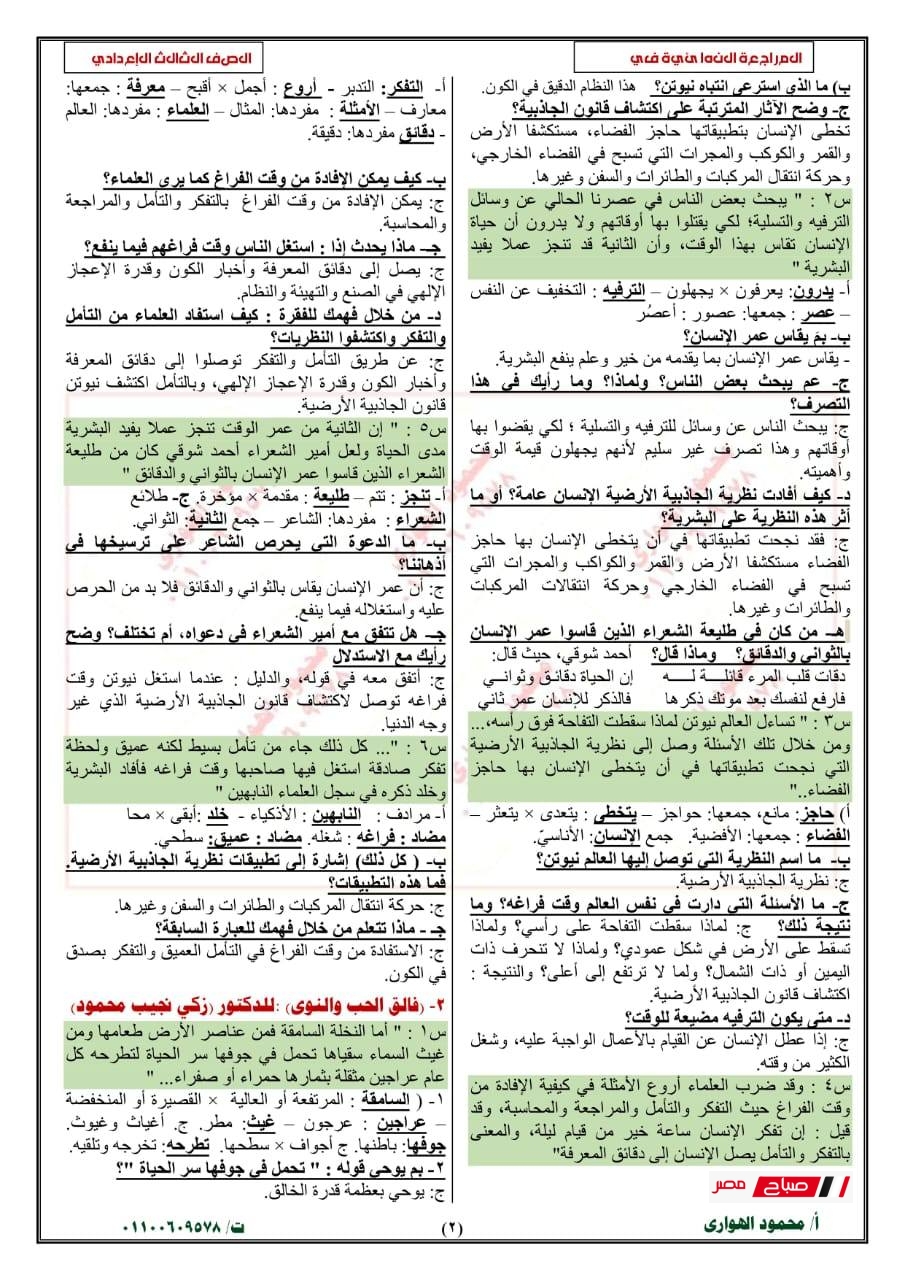 المراجعة النهائية في
الصف الثالث الإعدادي
ب) ما الذي استرعى انتباه نيوتن؟ هذا النظام الدقيق في الكون.
ج- وضح الآثار المترتبة على اكتشاف قانون الجاذبية؟
تخطى الإنسان بتطبيقاتها حاجز الفضاء، مستكشفا الأرض
والقمر والكوكب والمجرات التي تسبح في الفضاء الخارجي،
وحركة انتقال المركبات والطائرات والسفن وغيرها.
س٢ : " يبحث بعض الناس في عصرنا الحالي عن وسائل
الترفيه والتسلية؛ لكي يقتلوا بها أوقاتهم ولا يدرون أن حياة
الإنسان تقاس بهذا الوقت، وأن الثانية قد تنجز عملا يفيد
البشرية "
أ- يدرون: يعرفون × يجهلون – الترفيه : التخفيف عن النفس
– عصر : جمعها: عصور : أعصُر
ب- بمَ يقاس عمر الإنسان؟
- يقاس عمر الإنسان بما يقدمه من خير وعلم ينفع البشرية.
ج- عم يبحث بعض الناس؟ ولماذا؟ وما رأيك في هذا
التصرف؟
ج: يبحث الناس عن وسائل للترفيه والتسلية ؛ لكي يقضوا بها
أوقاتهم وهذا تصرف غير سليم لأنهم يجهلون قيمة الوقت
وأهميته.
د- كيف أفادت نظرية الجاذبية الأرضية الإنسان عامة؟ أو ما
أثر هذه النظرية على البشرية؟
ج: فقد نجحت تطبيقاتها في أن يتخطى الإنسان بها حاجز
الفضاء مستكشفا الأرض والقمر والكواكب والمجرات التي
تسبح في الفضاء الخارجي وحركة انتقالات المركبات
والطائرات وغيرها.
هـ- من كان في طليعة الشعراء الذين قاسوا عمر الإنسان
بالثواني والدقائق؟ وماذا قال؟ أحمد شوقي، حيث قال:
دقات قلب المرء قائلـــة لـــه إن الحياة دقائـق وثوانــي
فارفع لنفسك بعد موتك ذكرها فالذكر للإنسان عمر ثاني
س٣ : " تساءل العالم نيوتن لماذا سقطت التفاحة فوق رأسه،...
ومن خلال تلك الأسئلة وصل إلى نظرية الجاذبية الأرضية
التي نجحت تطبيقاتها في أن يتخطى الإنسان بها حاجز
الفضاء.."
أ) حاجز: مانع، جمعها: حواجز – يتخطى : يتعدى × يتعثر –
الفضاء : جمعها: الأفضية. جمع الإنسان: الأناسيّ.
ب- ما اسم النظرية التي توصل إليها العالم نيوتن؟
ج: نظرية الجاذبية الأرضية.
ج- ما الأسئلة التي دارت في نفس العالم وقت فراغه؟ وما
نتيجة ذلك؟ ج: لماذا سقطت التفاحة على رأسي؟ ولماذا
تسقط على الأرض في شكل عمودي؟ ولماذا لا تنحرف ذات
اليمين أو ذات الشمال؟ ولما لا ترتفع إلى أعلى؟ والنتيجة :
اكتشاف قانون الجاذبية الأرضية.
د- متى يكون الترفيه مضيعة للوقت؟
ج: إذا عطل الإنسان عن القيام بالأعمال الواجبة عليه، وشغل
الكثير من وقته.
س٤ : وقد ضرب العلماء أروع الأمثلة في كيفية الإفادة من
وقت الفراغ حيث التفكر والتأمل والمراجعة والمحاسبة، وقد
قيل : إن تفكر الإنسان ساعة خير من قيام ليلة، والمعنى
بالتفكر والتأمل يصل الإنسان إلى دقائق المعرفة"
صباح مصر
أ- التفكر: التدبر - أروع : أجمل × أقبح – معرفة : جمعها:
معارف – الأمثلة : مفردها: المثال – العلماء : مفردها: العالم
- دقائق مفردها: دقيقة.
ب- كيف يمكن الإفادة من وقت الفراغ كما يرى العلماء؟
ج: يمكن الإفادة من وقت الفراغ بالتفكر والتأمل والمراجعة
والمحاسبة.
جـ- ماذا يحدث إذا : استغل الناس وقت فراغهم فيما ينفع؟
ج: يصل إلى دقائق المعرفة وأخبار الكون وقدرة الإعجاز
الإلهي في الصنع والتهيئة والنظام.
د- من خلال فهمك للفقرة : كيف استفاد العلماء من التأمل
والتفكر واكتشفوا النظريات؟
ج: عن طريق التأمل والتفكر توصلوا إلى دقائق المعرفة
وأخبار الكون وقدرة الإعجاز الإلهي، وبالتأمل اكتشف نيوتن
قانون الجاذبية الأرضية.
س٥ : " إن الثانية من عمر الوقت تنجز عملا يفيد البشرية
مدى الحياة ولعل أمير الشعراء أحمد شوقي كان من طليعة
الشعراء الذين قاسوا عمر الإنسان بالثواني والدقائق "
أ- تنجز : تتم – طليعة : مقدمة × مؤخرة. ج- طلائع
الشعراء : مفردها: الشاعر – جمع الثانية: الثواني.
ب- ما الدعوة التي يحرص الشاعر على ترسيخها في
أذهاننا؟
ج: أن عمر الإنسان يقاس بالثواني والدقائق فلا بد من الحرص
عليه واستغلاله فيما ينفع.
جـ- هل تتفق مع أمير الشعراء في دعواه، أم تختلف؟ وضح
رأيك مع الاستدلال
ج: أتفق معه في قوله، والدليل : عندما استغل نيوتن وقت
فراغه توصل لاكتشاف قانون الجاذبية الأرضية الذي غير
وجه الدنيا.
س٦ : "... كل ذلك جاء من تأمل بسيط لكنه عميق ولحظة
تفكر صادقة استغل فيها صاحبها وقت فراغه فأفاد البشرية
وخلد ذكره في سجل العلماء النابهين "
أ- مرادف : النابهين : الأذكياء - خلد :أبقى × محا
مضاد : فراغه : شغله. مضاد : عميق: سطحي.
ب- ( كل ذلك) إشارة إلى تطبيقات نظرية الجاذبية الأرضية.
فما هذه التطبيقات؟
ج: حركة انتقال المركبات والطائرات والسفن وغيرها.
جـ - ماذا تتعلم من خلال فهمك للعبارة السابقة؟
ج: الاستفادة من وقت الفراغ في التأمل العميق والتفكر بصدق
في الكون.
٢- (فالق الحب والنوى) :للدكتور (زكي نجيب محمود)
س١ : " أما النخلة السامقة فمن عناصر الأرض طعامها ومن
غيث السماء سقياها تحمل في جوفها سر الحياة لتطرحه كل
عام عراجين مثقلة بثمارها حمراء أو صفراء... "
١- ( السامقة : المرتفعة أو العالية × القصيرة أو المنخفضة
– عراجين : عرجون – غيث: مطر. ج. أغياث وغيوث.
جوفها: باطنها. ج أجواف × سطحها. تطرحه: تخرجه وتلقيه.
٢- بم يوحي قوله : " تحمل في جوفها سر الحياة "؟
ج: يوحي بعظمة قدرة الخالق.
أ/ محمود الهوارى
(٢)
ت/ ٠١١٠٠٦٠٩٥٧٨